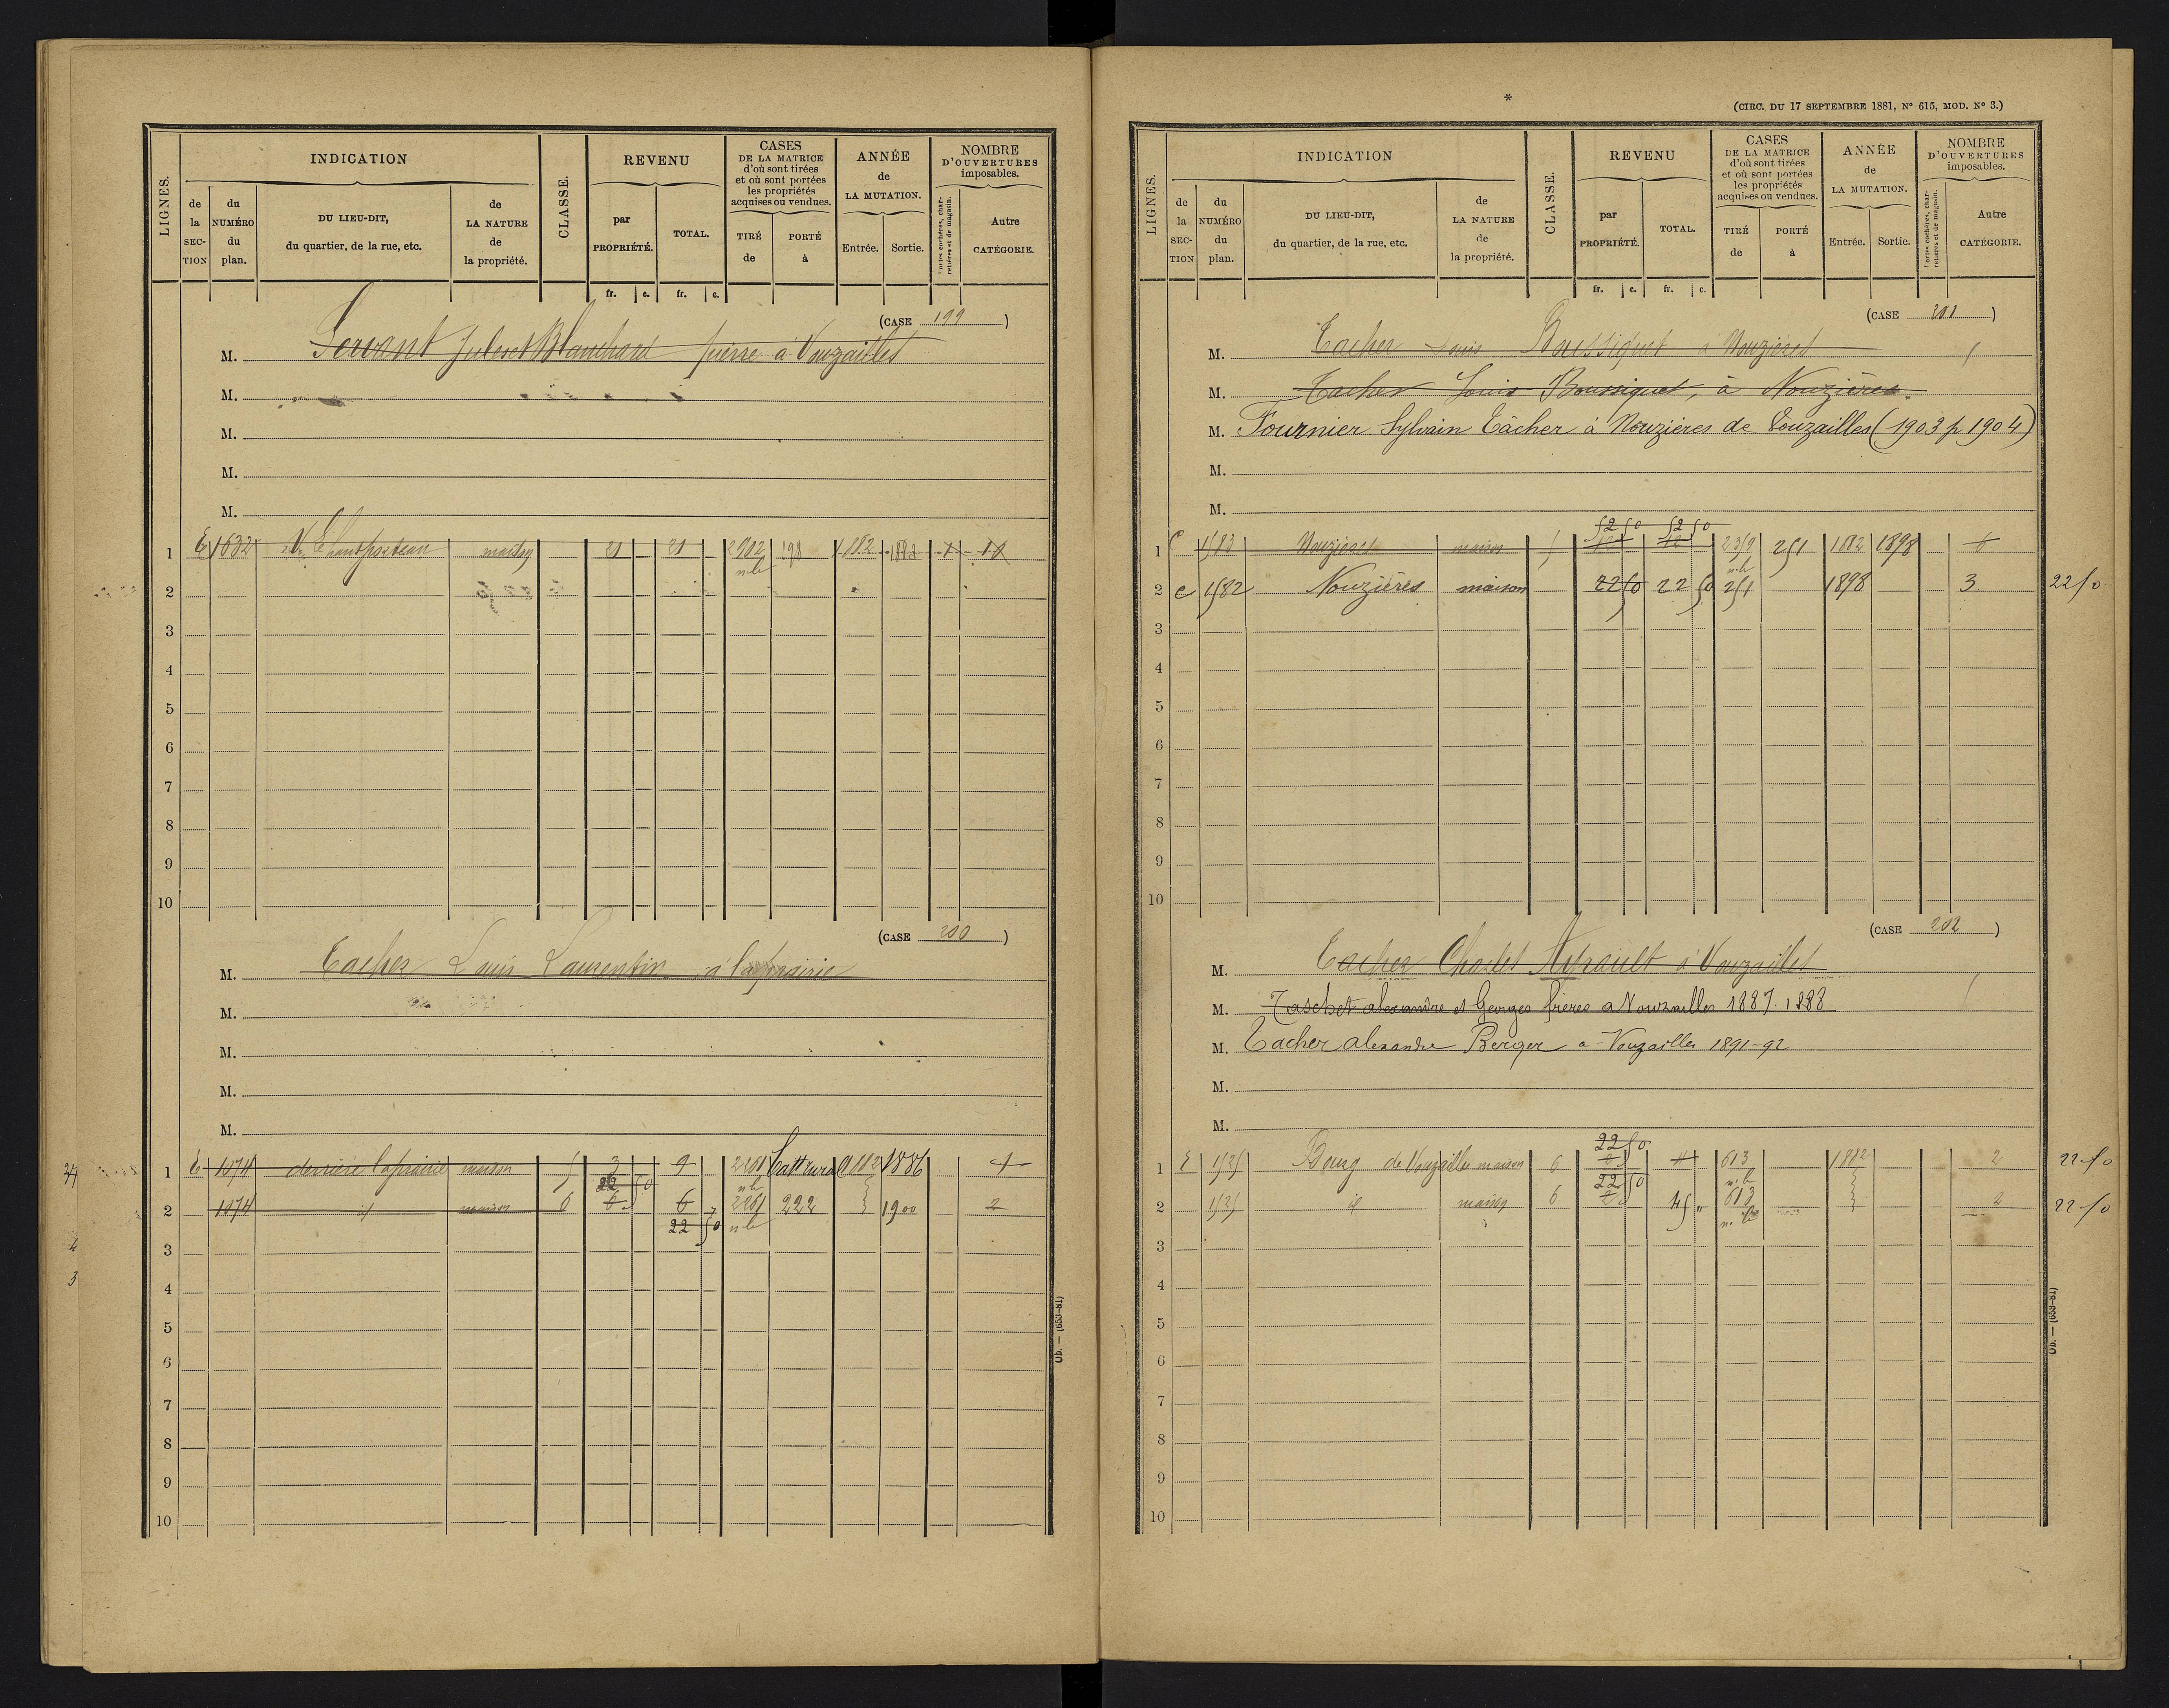 LIGNES.
INDICATION
de la SECTION
du NUMÉRO du plan.
DU LIEU-DIT, du quartier, de la rue, etc.
de LA NATURE de la propriété.
CLASSE.
REVENU
par PROPRIÉTÉ.
TOTAL.
CASES DE LA MATRICE d'où sont tirées et où sont portées les propriétés acquises ou vendues.
TIRÉ de
PORTÉ à
ANNÉE de LA MUTATION.
Entrée.
Sortie.
NOMBRE D'OUVERTURES imposables.
Portes cochères, charretières et de magasin.
Autre CATÉGORIE.
fr. c. fr. c.
(CASE 199)
M. Servant Jules et Blanchard pierre à Vouzailles
M.
M.
M.
M.
1 E 1632 maison 21 21 2902 198 1882 1883 1 10
n.b
2
3
4
5
6
7
8
9
10
(CASE 200)
M. Tacher Louis Laurentin à la prairie
M.
M.
M.
M.
1 E 1074 derrière la prairie maison 5 3 9 2261 Batt rural 1882 1886 1
22 50 n b
2 1074 id maison 6 6 6 2261 222 1900 2
22 50 n b
3
4
5
6
7
8
9
10
Ob. — (653-81)
(CIRC. DU 17 SEPTEMBRE 1881, N° 615, MOD. N° 3.)
LIGNES.
INDICATION
de la SECTION
du NUMÉRO du plan.
DU LIEU-DIT, du quartier, de la rue, etc.
de LA NATURE de la propriété.
CLASSE.
REVENU
par PROPRIÉTÉ.
TOTAL.
CASES DE LA MATRICE d'où sont tirées et où sont portées les propriétés acquises ou vendues.
TIRÉ de
PORTÉ à
ANNÉE de LA MUTATION.
Entrée.
Sortie.
NOMBRE D'OUVERTURES imposables.
Portes cochères, charretières et de magasin.
Autre CATÉGORIE.
fr. c. fr. c.
(CASE 201)
M. Tacher Louis Boussiquet à Nouzières
M. Tacher Louis Boussiquet, à Nouzières.
M. Fournier Sylvain Tâcher à Nouzières de Vouzailles (1903 p 1904)
M.
M.
52 50 52 50
1 C 1583 Nouzières maison 5 12 12 2359 251 1882 1898 6
n.b
2 C 1582 Nouzières maison 22 50 22 50 251 1898 3 22 50
3
4
5
6
7
8
9
10
(CASE 202)
M. Tacher Charles Airault à Vouzailles
M. Taschet alexandre et Georges frères a Vouzailles 1887. 1888
M. Tacher alexandre Berger a Vouzailles 1891-92
M.
M.
22 50
1 E 1525 Bourg de Vouzailles maison 6 613 1882 2 22 50
22 50 n.b
2 1525 id maison 6 45 " 613 2 22 50
n.b
3
4
5
6
7
8
9
10
Ob. — (653-81)